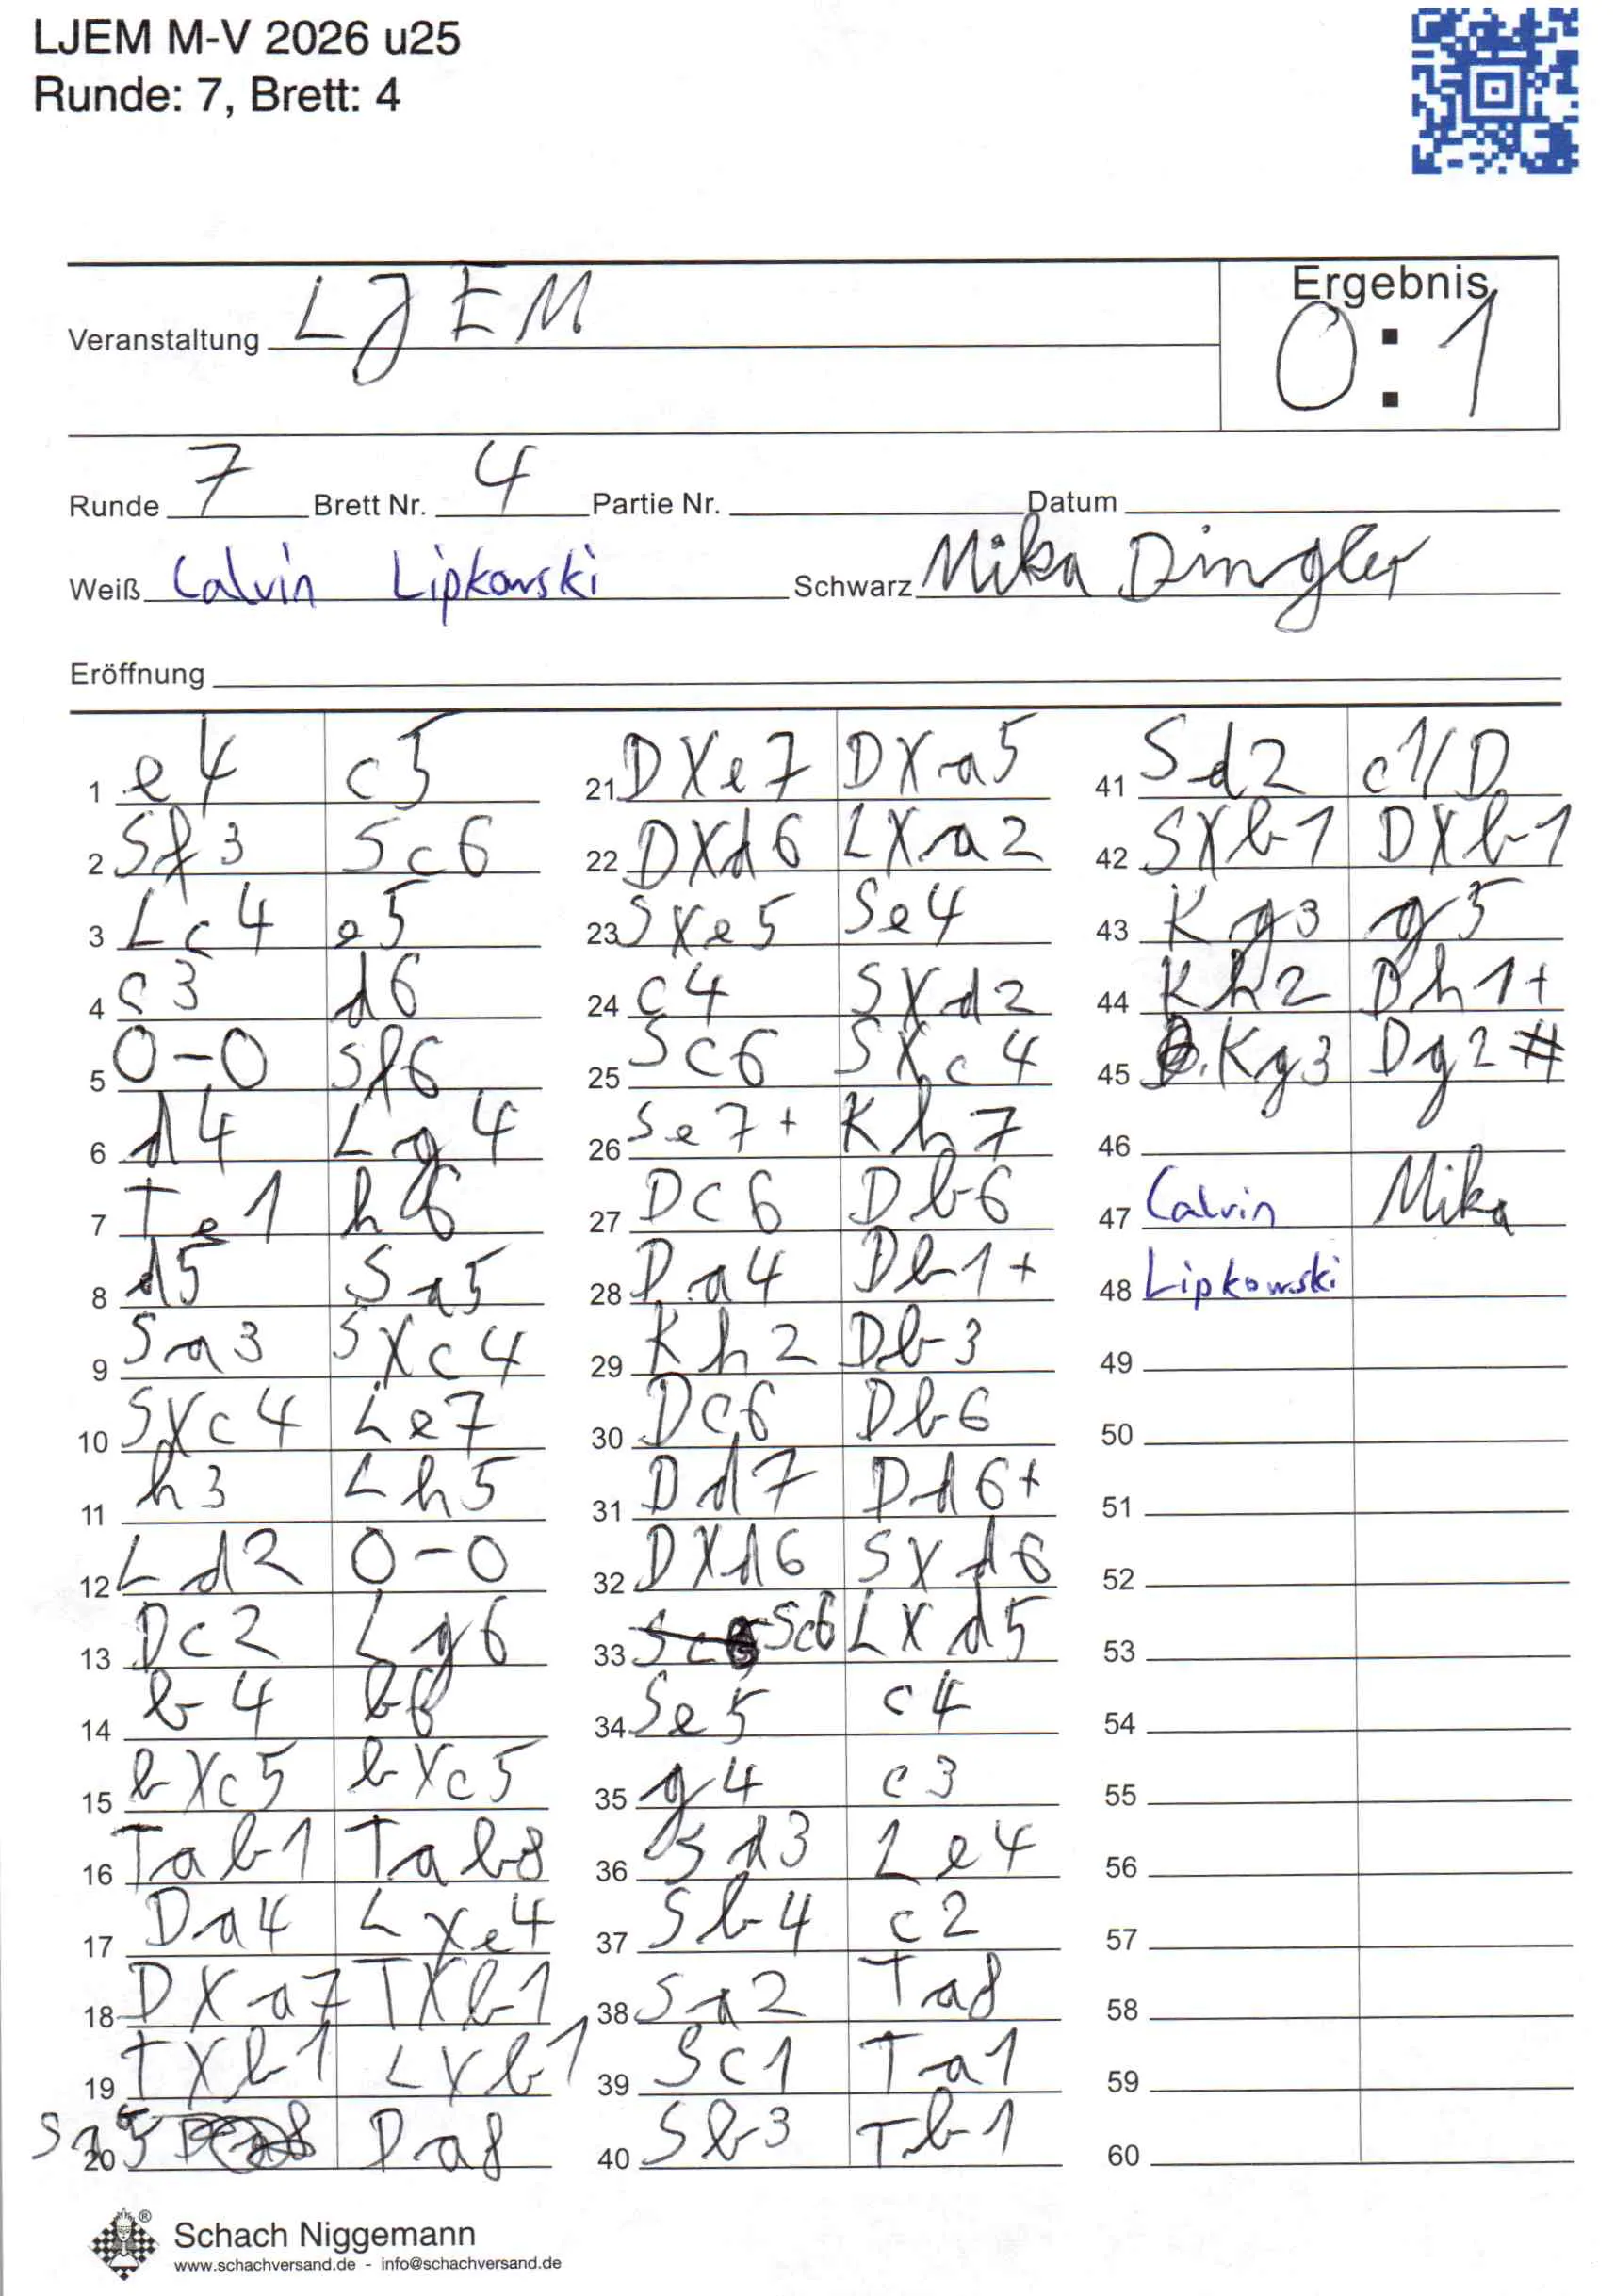 LJEM M-V 2026 u25
Runde: 7, Brett: 4
Ergebnis
Veranstaltung LJEM
0:1
Runde 7 Brett Nr. 4 Partie Nr. Datum
Weiß Calvin Lipkowski Schwarz Mika Dingler
Eröffnung
1 e4 c5
2 Sf3 Sc6
3 Lc4 e5
4 c3 d6
5 0-0 Sf6
6 d4 Lg4
7 Te1 h6
8 d5 Sa5
9 Sa3 SXc4
10 SXc4 Le7
11 h3 Lh5
12 Ld2 0-0
13 Dc2 Lg6
14 b4 b6
15 bXc5 bXc5
16 Tab1 Tab8
17 Da4 LXe4
18 DXa7 TXb1
19 TXb1 LXb1
20 Sa5 Da8
21 DXe7 DXa5
22 DXd6 LXa2
23 SXe5 Se4
24 c4 SXd2
25 Sc6 SXc4
26 Se7+ Kh7
27 Dc6 Db6
28 Da4 Db1+
29 Kh2 Db3
30 Dc6 Db6
31 Dd7 Dd6+
32 DXd6 SXd6
33 Sc6 LXd5
34 Se5 c4
35 g4 c3
36 Sd3 Le4
37 Sb4 c2
38 Sa2 Ta8
39 Sc1 Ta1
40 Sb3 Tb1
41 Sd2 c1/D
42 SXb1 DXb1
43 Kg3 g5
44 Kh2 Dh1+
45 Kg3 Dg2#
46
47 Calvin Mika
48 Lipkowski
49
50
51
52
53
54
55
56
57
58
59
60
Schach Niggemann
www.schachversand.de - info@schachversand.de